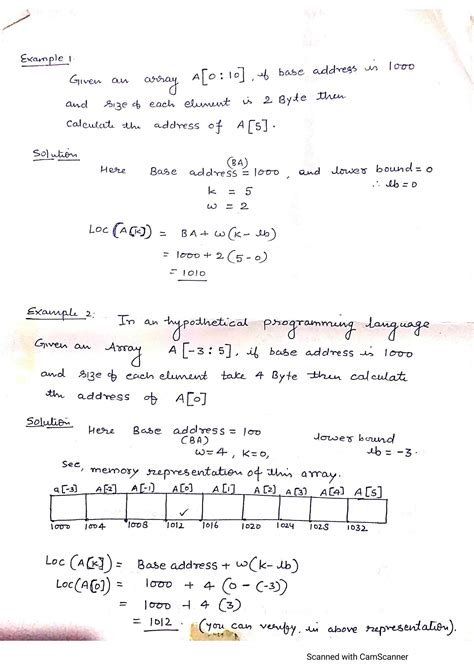 Example 1.
Given an array A[0:10], if base address is 1000
and size of each element is 2 Byte then
Calculate the address of A[5].
Solution
Here Base address (BA) = 1000, and lower bound = 0
k = 5 ∴ lb = 0
w = 2
Loc (A[k]) = BA + w(k - lb)
= 1000 + 2 (5-0)
= 1010
Example 2: In an hypothetical programming language
Given an Array A[-3:5], if base address is 1000
and size of each element take 4 Byte then calculate
the address of A[0]
Solution
Here Base address = 100 lower bound
(BA) w=4, k=0, lb = -3.
See, memory representation of this array.
a[-3] A[2] A[-1] A[0] A[1] A[2] A[3] A[4] A[5]
✓
1000 1004 1008 1012 1016 1020 1024 1028 1032
Loc (A[k]) = Base address + w(k-lb)
Loc(A[0]) = 1000 + 4 (0 - (-3))
= 1000 + 4 (3)
= 1012. (you can verify in above representation).
Scanned with CamScanner